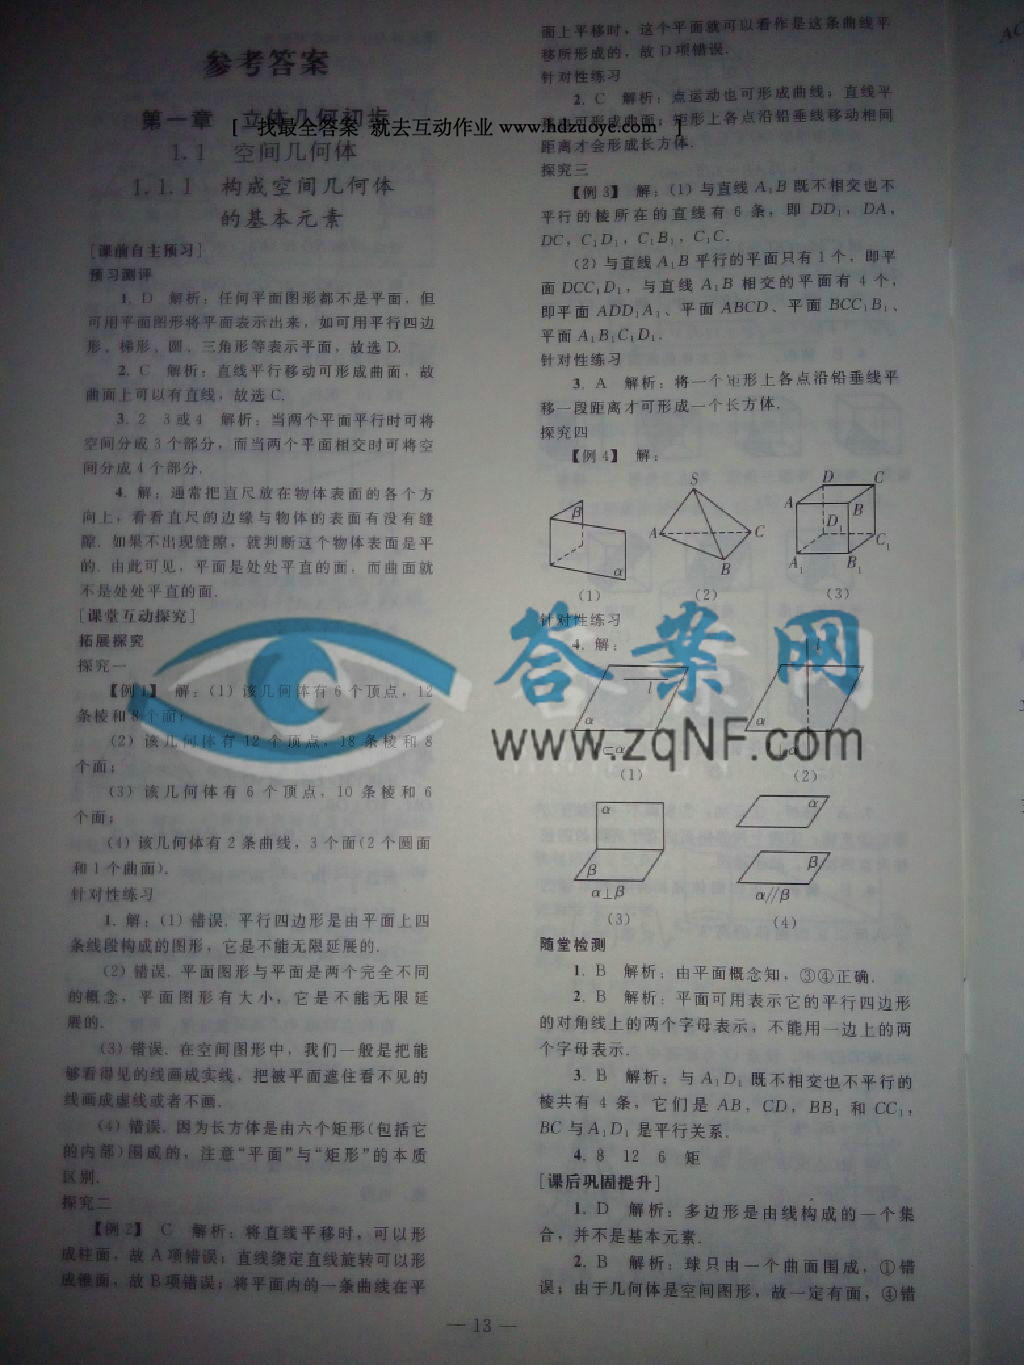 参考答案
第一章 立体几何初步
[ 找最全答案 就去互动作业 www.hdzuoye.com ]
1.1 空间几何体
1.1.1 构成空间几何体
的基本元素
[课前自主预习]
预习测评
1. D 解析：任何平面图形都不是平面，但
可用平面图形将平面表示出来，如可用平行四边
形、梯形、圆、三角形等表示平面，故选 D.
2. C 解析：直线平行移动可形成曲面，故
曲面上可以有直线，故选 C.
3. 2 3 或 4 解析：当两个平面平行时可将
空间分成 3 个部分，而当两个平面相交时可将空
间分成 4 个部分.
4. 解：通常把直尺放在物体表面的各个方
向上，看看直尺的边缘与物体的表面有没有缝
隙. 如果不出现缝隙，就判断这个物体表面是平
的. 由此可见，平面是处处平直的面，而曲面就
不是处处平直的面.
[课堂互动探究]
拓展探究
探究一
【例 1】 解：(1) 该几何体有 6 个顶点，12
条棱和 8 个面；
(2) 该几何体有 12 个顶点，18 条棱和 8
个面；
(3) 该几何体有 6 个顶点，10 条棱和 6
个面；
(4) 该几何体有 2 条曲线，3 个面(2 个圆面
和 1 个曲面).
针对性练习
1. 解：(1) 错误. 平行四边形是由平面上四
条线段构成的图形，它是不能无限延展的.
(2) 错误. 平面图形与平面是两个完全不同
的概念，平面图形有大小，它是不能无限延
展的.
(3) 错误. 在空间图形中，我们一般是把能
够看得见的线画成实线，把被平面遮住看不见的
线画成虚线或者不画.
(4) 错误. 因为长方体是由六个矩形(包括它
的内部)围成的，注意“平面”与“矩形”的本质
区别.
探究二
【例 2】 C 解析：将直线平移时，可以形
成柱面，故 A 项错误；直线绕定直线旋转可以形
成锥面，故 B 项错误；将平面内的一条曲线在平
面上平移时，这个平面就可以看作是这条曲线平
移所形成的，故 D 项错误.
针对性练习
2. C 解析：点运动也可形成曲线；直线平
移也可形成曲面；矩形上各点沿铅垂线移动相同
距离才会形成长方体.
探究三
【例 3】 解：(1) 与直线 A₁B 既不相交也不
平行的棱所在的直线有 6 条，即 DD₁，DA，
DC，C₁D₁，C₁B₁，C₁C.
(2) 与直线 A₁B 平行的平面只有 1 个，即平
面 DCC₁D₁，与直线 A₁B 相交的平面有 4 个，
即平面 ADD₁A₁、平面 ABCD、平面 BCC₁B₁、
平面 A₁B₁C₁D₁.
针对性练习
3. A 解析：将一个矩形上各点沿铅垂线平
移一段距离才可形成一个长方体.
探究四
【例 4】 解：
β α
(1)
S A C B
(2)
D C A B D₁ C₁ A₁ B₁
(3)
针对性练习
4. 解：
l α
⊂α
(1)
l α
(2)
α β
α⊥β
(3)
α β
α//β
(4)
答案网
www.zqNF.com
随堂检测
1. B 解析：由平面概念知，③④正确.
2. B 解析：平面可用表示它的平行四边形
的对角线上的两个字母表示，不能用一边上的两
个字母表示.
3. B 解析：与 A₁D₁ 既不相交也不平行的
棱共有 4 条，它们是 AB，CD，BB₁ 和 CC₁，
BC 与 A₁D₁ 是平行关系.
4. 8 12 6 矩
[课后巩固提升]
1. D 解析：多边形是由线构成的一个集
合，并不是基本元素.
2. B 解析：球只由一个曲面围成，①错
误；由于几何体是空间图形，故一定有面，④错
— 13 —